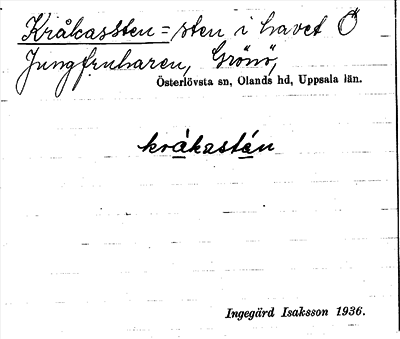 Kråkassten = sten i havet Ö
Jungfruharen, Grönö,
Österlövsta sn, Olands hd, Uppsala län.
kråkastén
Ingegärd Isaksson 1936.